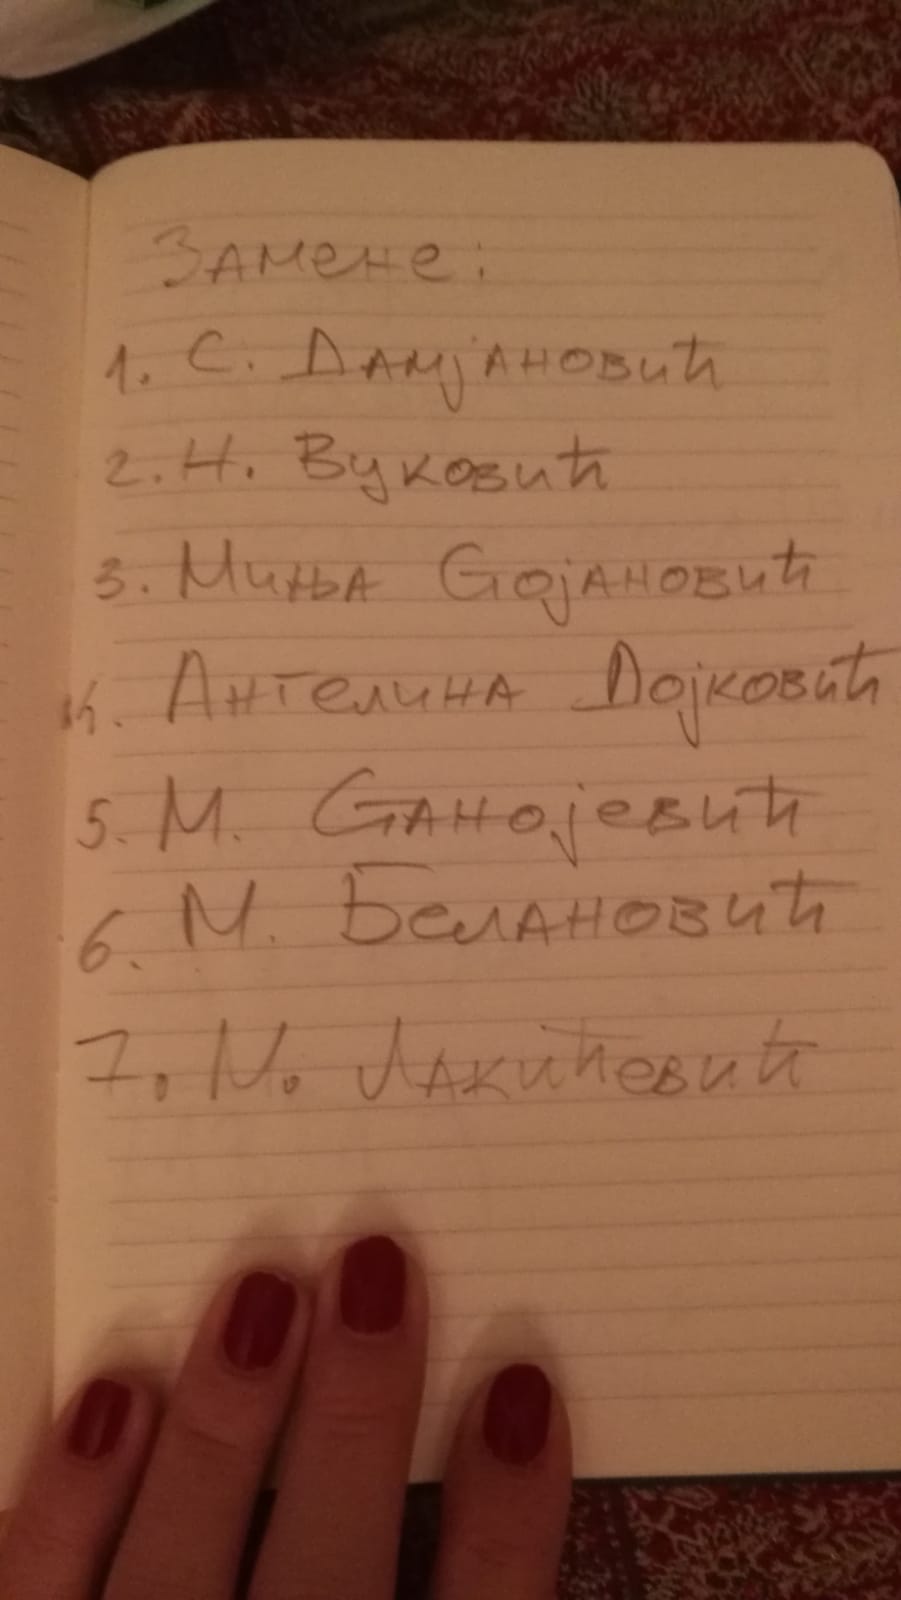 Замене:
1. С. Дамјановић
2. Н. Вуковић
3. Миња Стојановић
4. Ангелина Дојковић
5. М. Станојевић
6. М. Белановић
7. М. Лакићевић